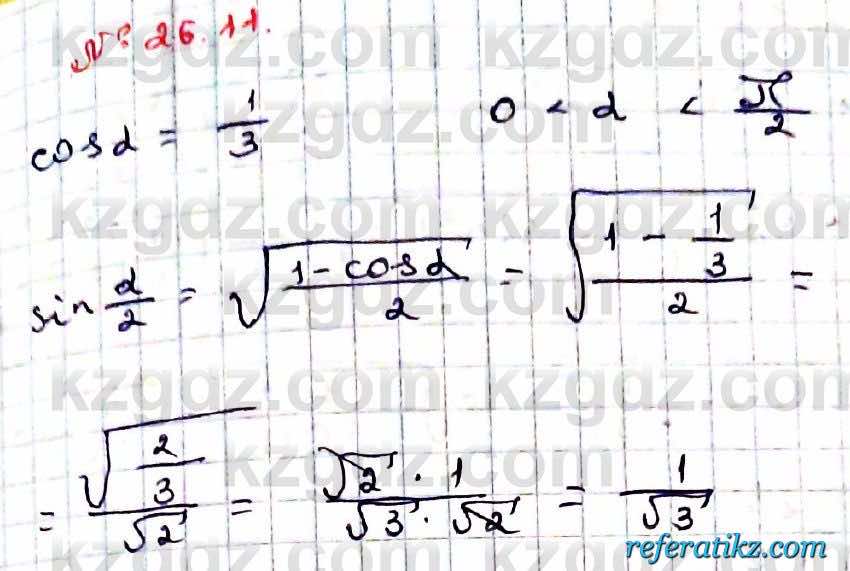 № 26.11.
cos α = 1/3    0 < α < π/2
sin α/2 = √((1 - cos α)/2) = √((1 - 1/3)/2) =
= √(2/3)/√2 = (√2 · 1)/(√3 · √2) = 1/√3
kzgdz.com kzgdz.com
kzgdz.com kzgdz.com
kzgdz.com kzgdz.com
kzgdz.com kzgdz.com
referatikz.com